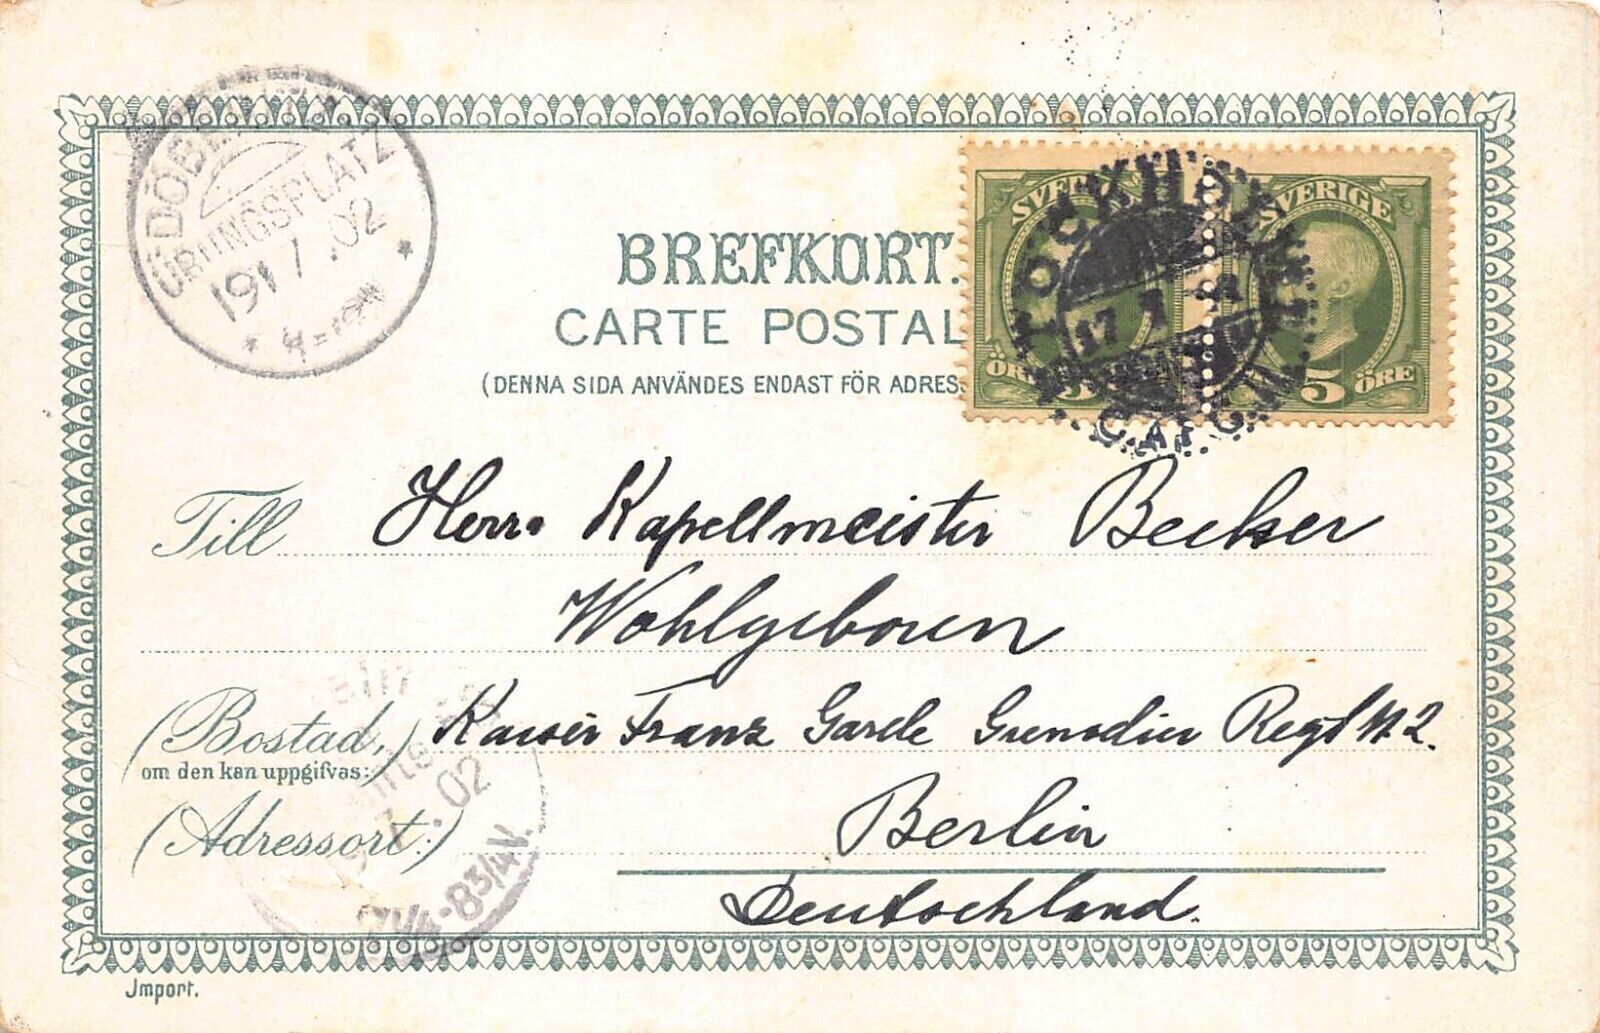 DÖBERITZ
ÜBUNGSPLATZ
19 7 .02
* 4-
BREFKORT.
CARTE POSTAL
(DENNA SIDA ANVÄNDES ENDAST FÖR ADRES
SVERIGE
SVERIGE
STOCKHOLM
17 7
C.
ÖRE 5
5 ÖRE
Till Herrn Kapellmeister Becker
Wohlgeboren
(Bostad, Kaiser Franz Garde Grenadier Regt N 2.
om den kan uppgifvas:)
(Adressort:) Berlin
Deutschland.
7 .02
7¼-8¾V.
Jmport.